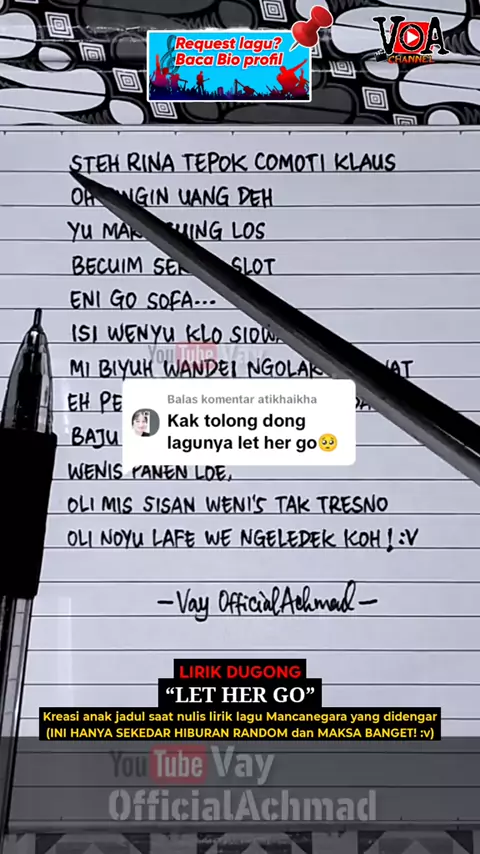 Request lagu?
Baca Bio profil
VOA
CHANNEL
STEH RINA TEPOK COMOTI KLAUS
UANG DEH
YU LOS
BECUIM SLOT
ENI GO SOFA...
ISI WENYU KLO
YouTube Vay
MI BIYUH WANDEI
EH
Balas komentar atikhaikha
Kak tolong dong
lagunya let her go🥺
BAJU
WENIS PANEN LOE,
OLI MIS SISAN WENI'S TAK TRESNO
OLI NOYU LAFE WE NGELEDEK KOH! :V
-Vay OfficialAchmad-
LIRIK DUGONG
“LET HER GO”
Kreasi anak jadul saat nulis lirik lagu Mancanegara yang didengar
(INI HANYA SEKEDAR HIBURAN RANDOM dan MAKSA BANGET! :v)
YouTube Vay
OfficialAchmad